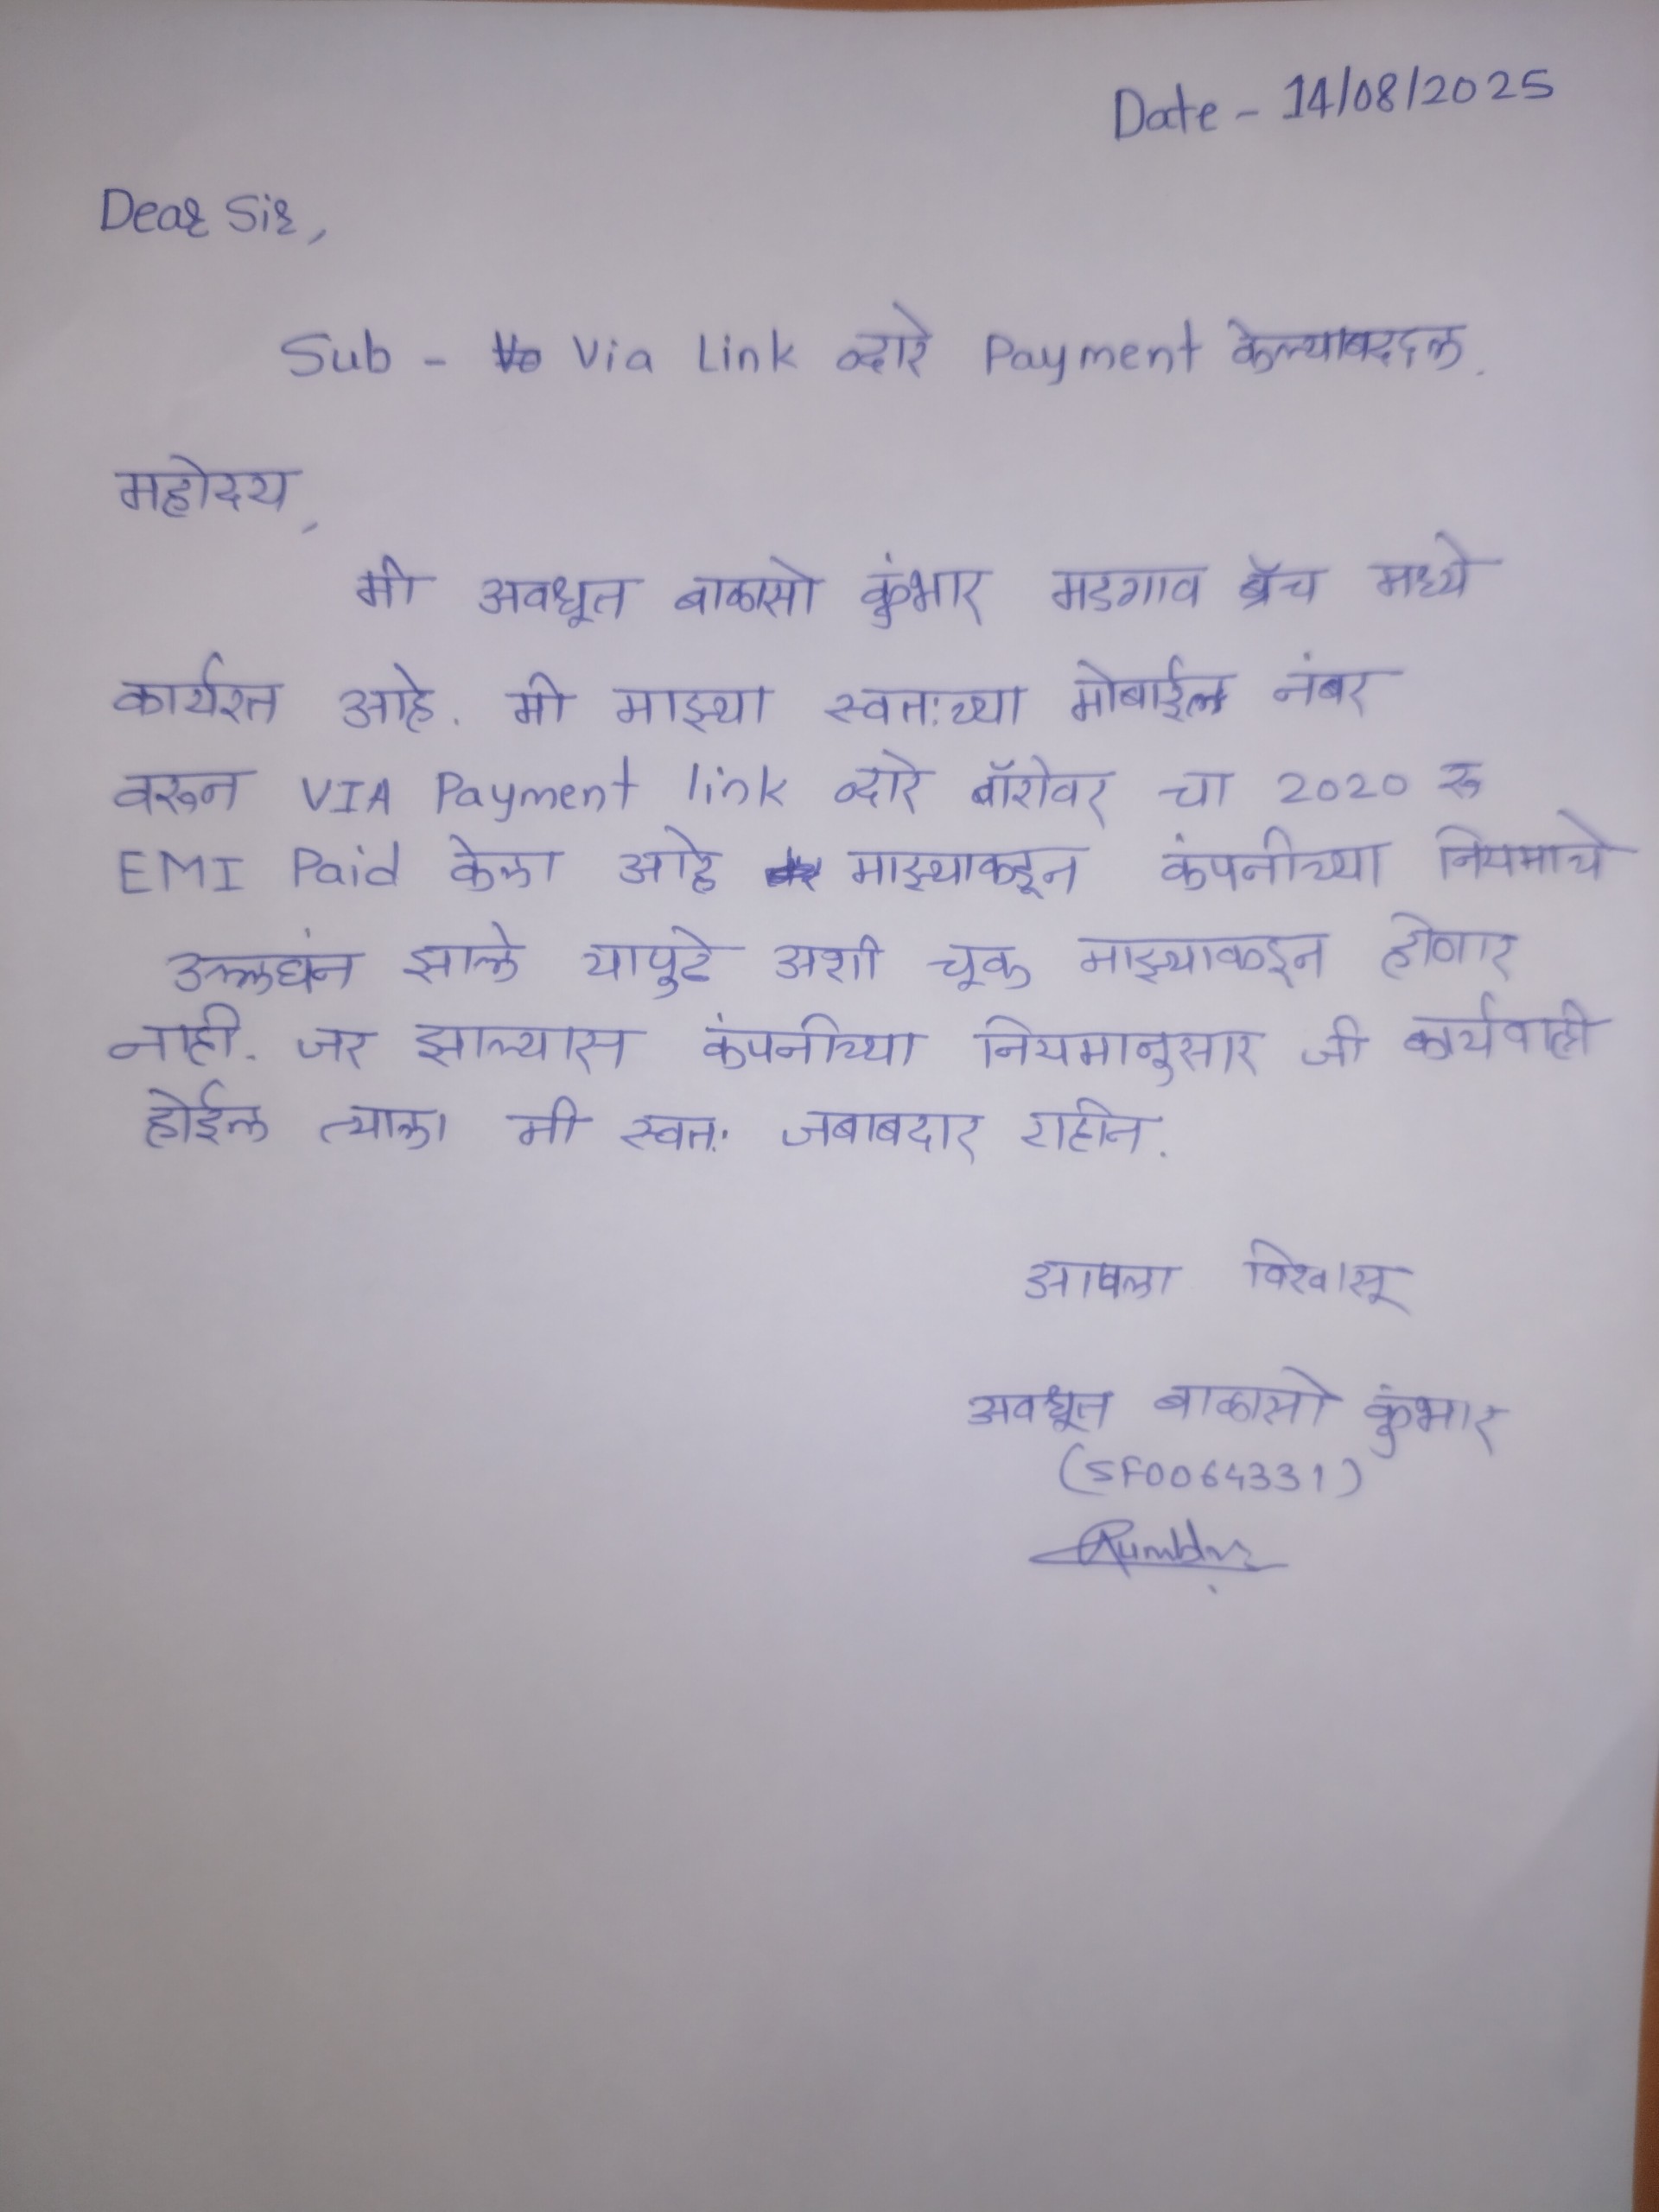 Date - 14/08/2025
Dear Sir,
Sub - Via Link व्दारे Payment केल्याबद्दल.
महोदय,
मी अवधूत बाळासो कुंभार मडगाव ब्रॅच मध्ये
कार्यरत आहे. मी माझ्या स्वतःच्या मोबाईल नंबर
वरून VIA Payment link व्दारे बॉरोवर चा 2020 रू
EMI Paid केला आहे माझ्याकडून कंपनीच्या नियमाचे
उल्लघंन झाले यापुढे अशी चूक माझ्याकडून होणार
नाही. जर झाल्यास कंपनीच्या नियमानुसार जी कार्यवाही
होईल त्याला मी स्वतः जबाबदार राहीन.
आपला विश्वासू
अवधूत बाळासो कुंभार
(SF0064331)
Kumbhar